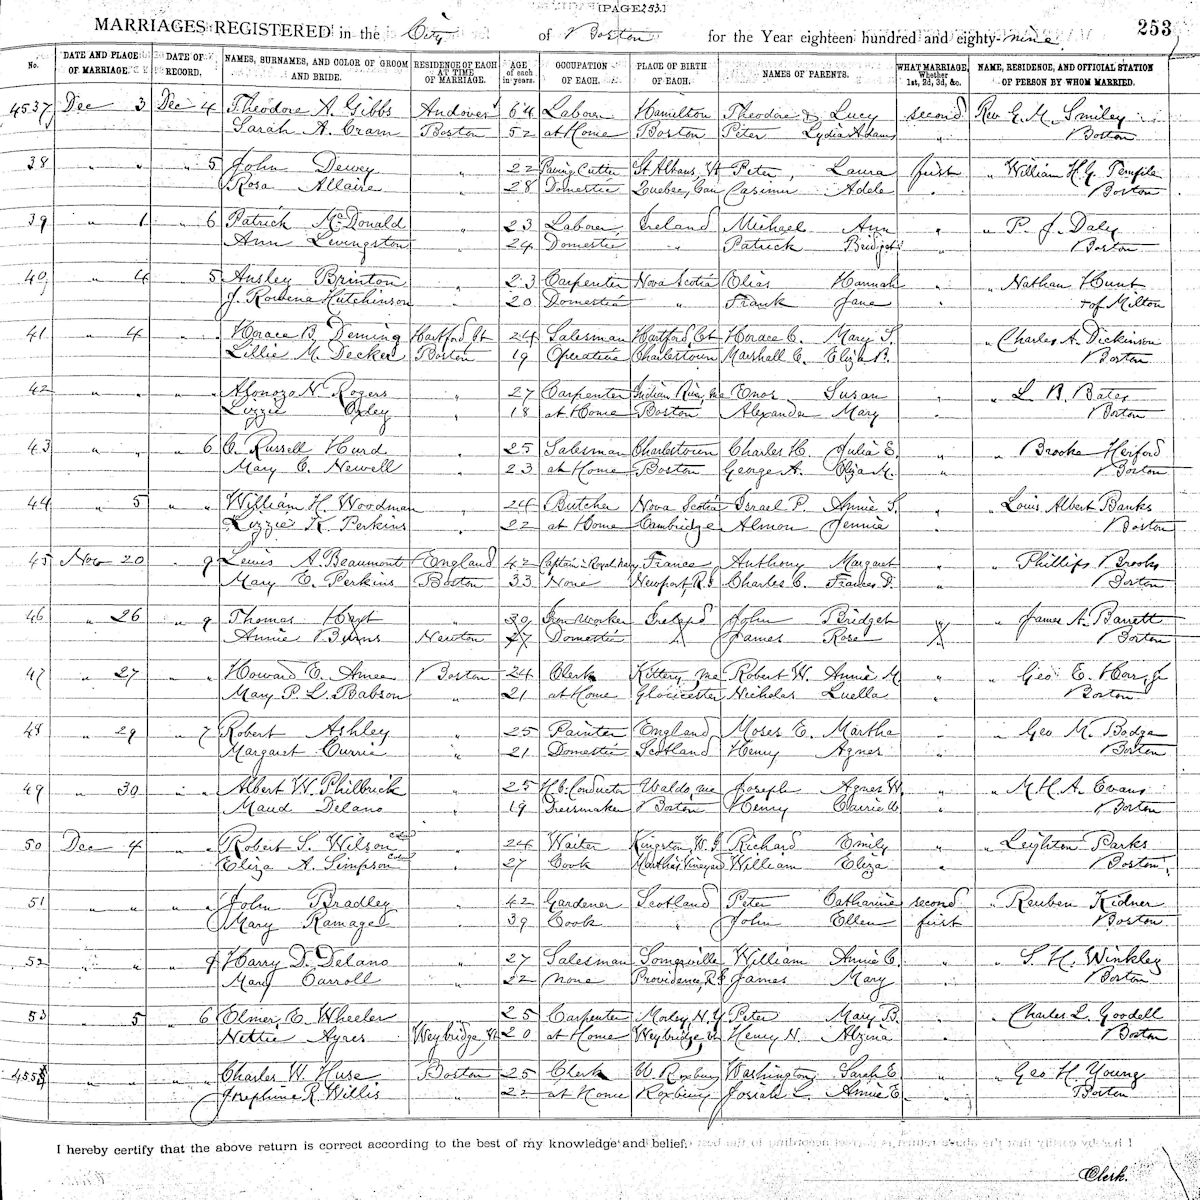 [PAGE 253.]
MARRIAGES REGISTERED in the City of Boston for the Year eighteen hundred and eighty-nine. 253
No. DATE AND PLACE OF MARRIAGE. DATE OF RECORD. NAMES, SURNAMES, AND COLOR OF GROOM AND BRIDE. RESIDENCE OF EACH AT TIME OF MARRIAGE. AGE of each in years. OCCUPATION OF EACH. PLACE OF BIRTH OF EACH. NAMES OF PARENTS. WHAT MARRIAGE, Whether 1st, 2d, 3d, &c. NAME, RESIDENCE, AND OFFICIAL STATION OF PERSON BY WHOM MARRIED.
4537 Dec 3 Dec 4 Theodore A. Gibbs Andover 64 Laborer Hamilton Theodore & Lucy second Rev G. M. Smiley
Sarah A. Cram Boston 52 at Home Boston Peter Lydia Adams " Boston
38 " " " 5 John Dewey " 22 Paving Cutter St Albans, Vt Peter, Laura first " William H. G. Temple
Rosa Allaire 28 Domestic Quebec, Can Casimir Adele " Boston
39 " 1 " 6 Patrick McDonald " 23 Laborer Ireland Michael Ann " " P. J. Daly
Ann Levingston 24 Domestic " Patrick Bridget " Boston
40 " 4 " 5 Ansley Brinton " 23 Carpenter Nova Scotia Elias Hannah " " Nathan Hunt
J. Rowena Hutchinson " 20 Domestic " Frank Jane " + of Milton
41 " 4 " " Horace B. Deming Hartford, Ct 24 Salesman Hartford, Ct Horace C. Mary S. " " Charles A. Dickinson
Lillie M. Decker Boston 19 Operative Charlestown Marshall C. Eliza B. Boston
42 " " " " Alonoza N. Rogers " 27 Carpenter Indian River, Me Enos Susan " " L. B. Bates
Lizzie Oxley " 18 at Home Boston Alexander Mary " Boston
43 " " " 6 C. Russell Hurd " 25 Salesman Charlestown Charles H. Julia E. " " Brooke Herford
Mary C. Newell 23 at Home Boston George A. Eliza M. " Boston
44 " 5 " " William H. Woodman " 24 Butcher Nova Scotia Israel P. Annie S. " " Louis Albert Banks
Lizzie K. Perkins " 22 at Home Cambridge Almon Jennie " Boston
45 Nov 20 " 9 Lewis A. Beaumont England 42 Captain in Royal Navy France Anthony Margaret " " Phillips Brooks
Mary E. Perkins Boston 33 None Newport, R.I. Charles C. Frances D. " Boston
46 " 26 " 9 Thomas Hoyt " 30 Iron worker Ireland John Bridget " " James A. Barrett
Annie Burns Newton 27 Domestic " James Rose " Boston
47 " 27 " " Howard E. Amee Boston 24 Clerk Kittery, Me Robert W. Annie M. " " Geo E. Horr, Jr
Mary P. L. Babson " 21 at Home Gloucester Nicholas Luella " Boston
48 " 29 " 7 Robert Ashley " 25 Painter England Moses E. Martha " " Geo M. Bodge
Margaret Currie " 21 Domestic Scotland Henry Agnes " Boston
49 " 30 " " Albert W. Philbrick " 25 H.C. Conductor Waldo, Me Joseph Agnes W. " " M. H. A. Evans
Maud Delano " 19 Dressmaker Boston Henry Carrie A. " Boston
50 Dec 4 " " Robert S. Wilson Col'd " 24 Waiter Kingston, W.I. Richard Emily " " Leighton Parks
Eliza A. Simpson Col'd " 27 Cook Martha's Vineyard William Eliza " Boston
51 " " " " John Bradley " 42 Gardener Scotland Peter Catharine second " Reuben Kidner
Mary Ramage " 39 Cook " John Ellen first Boston
52 " " " 9 Harry D. Delano " 27 Salesman Somerville William Annie C. " " S. H. Winkley
Mary Carroll " 22 None Providence, R.I. James Mary " Boston
53 " 5 " 6 Elmer, E. Wheeler " 25 Carpenter Morley, N.Y. Peter Mary B. " " Charles L. Goodell
Nettie Ayres Weybridge, Vt 20 at Home Weybridge, Vt Henry N. Alzina " Boston
4554 " " " " Charles W. Huse Boston 25 Clerk W. Roxbury Washington Sarah E. " " Geo H. Young
Josephine R. Willis " 22 at Home Roxbury Josiah L. Annie E. " Boston
I hereby certify that the above return is correct according to the best of my knowledge and belief.
Clerk.